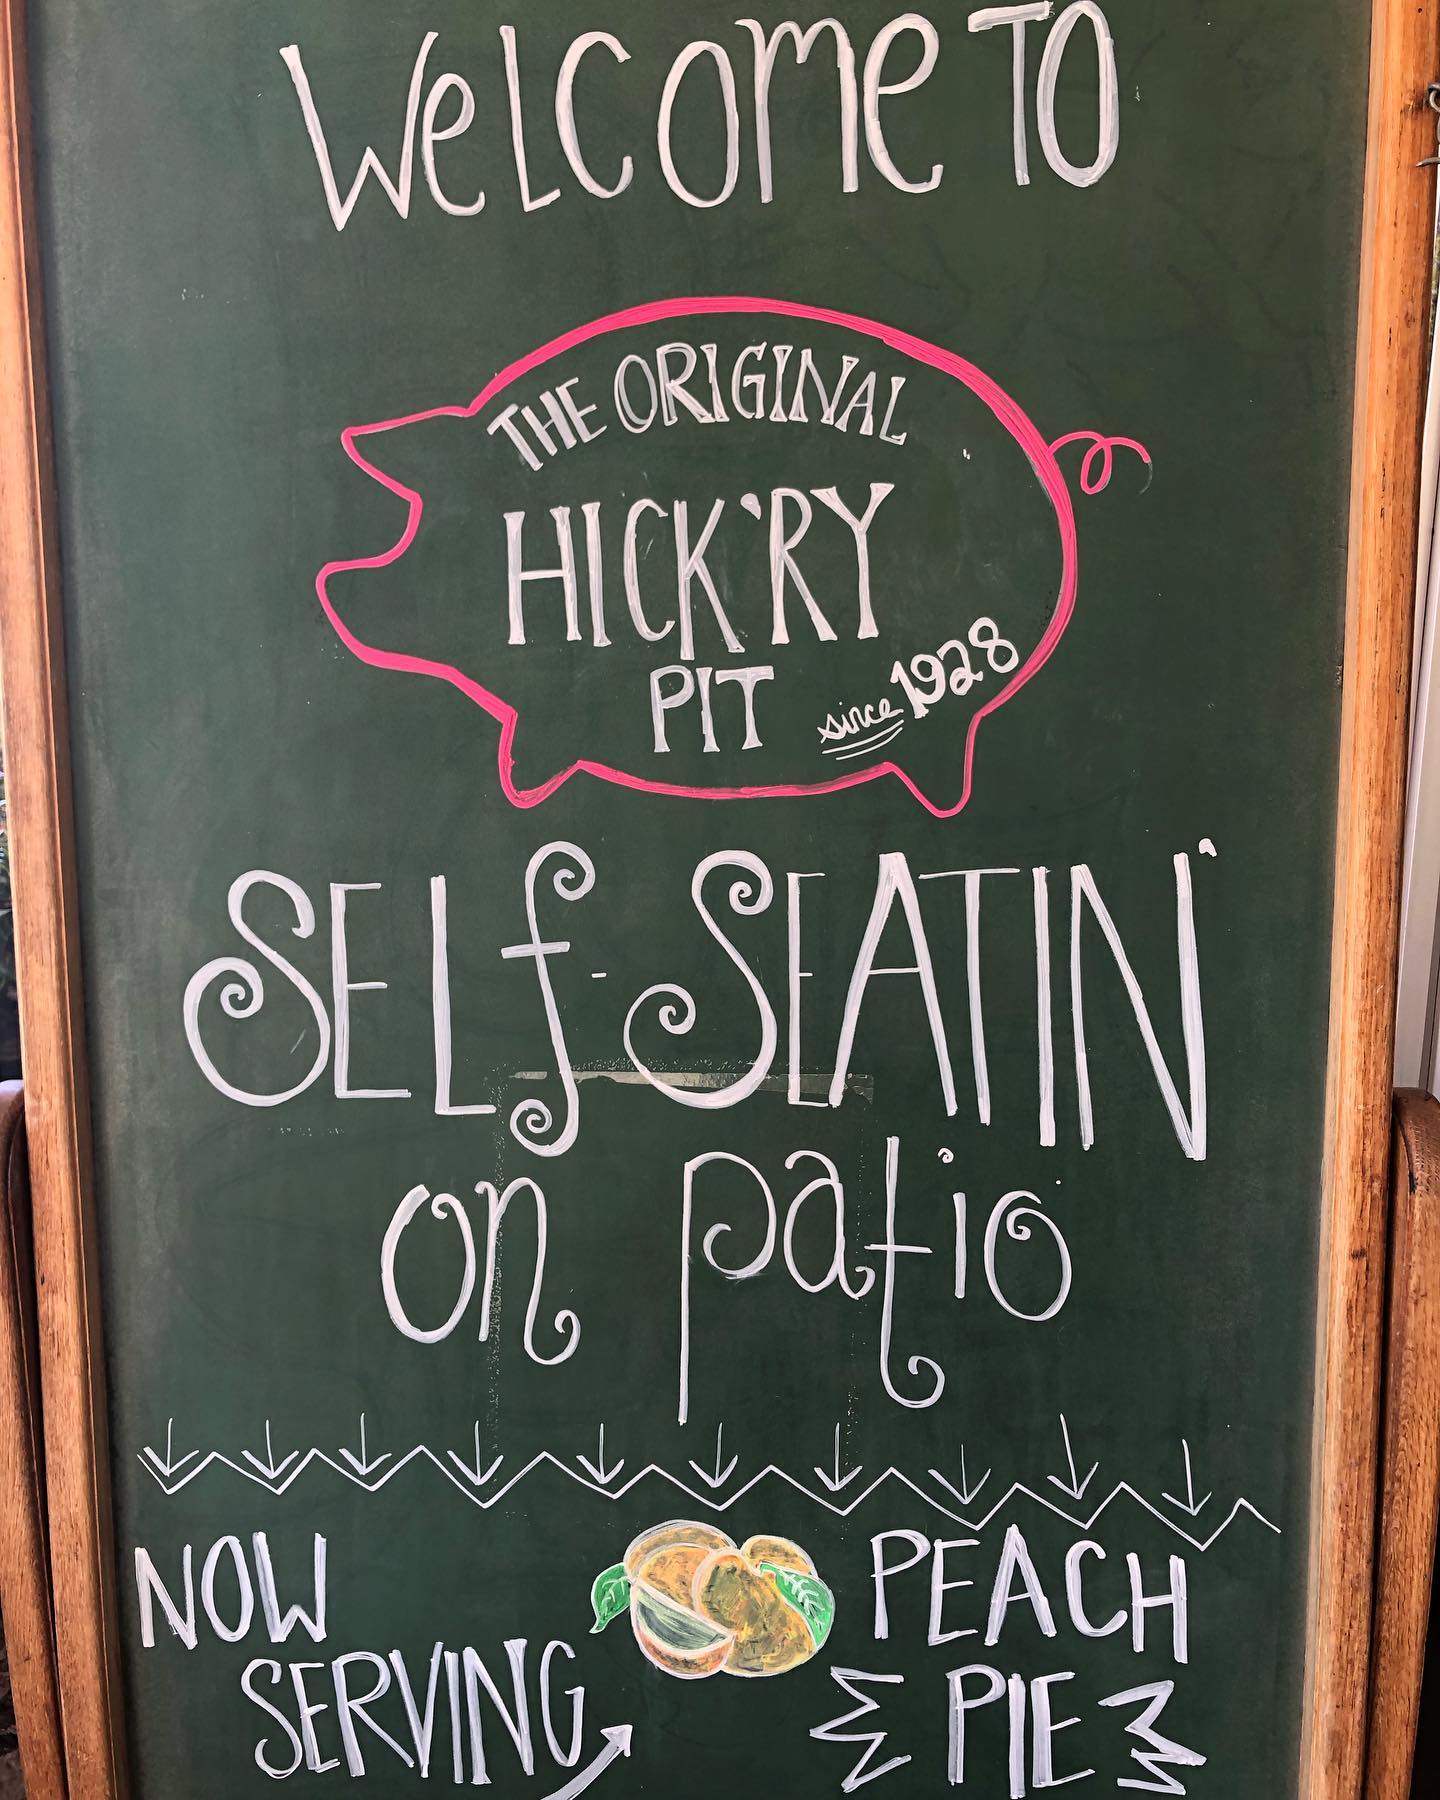 WeLCOme TO
THE ORIGINAL
HICK'RY
PIT
since 1928
SELf-SEATIN'
on patio
NOW
SERVING
PEACH
PIE